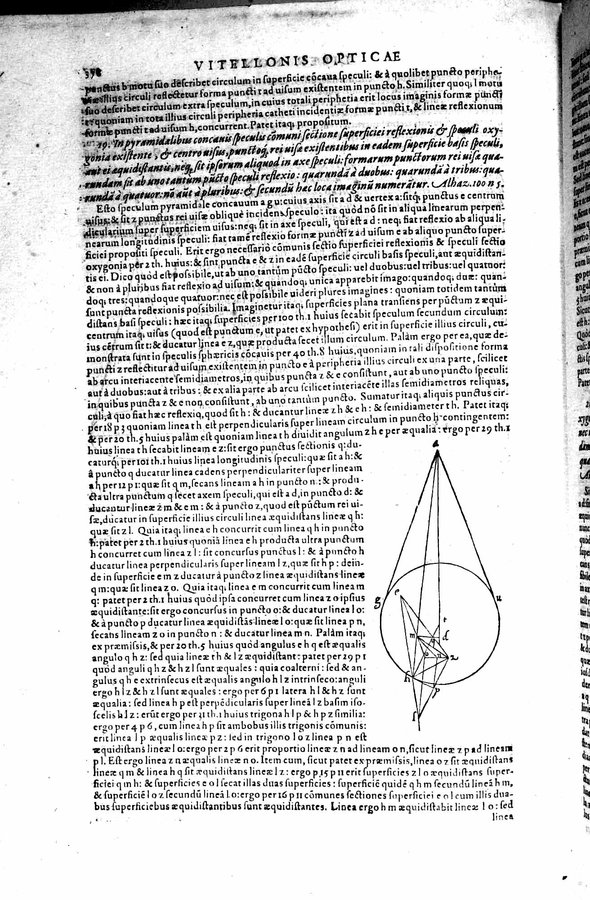 378
VITELLONIS OPTICAE
punctus b motu suo describet circulum in superficie cōcaua speculi: & à quolibet puncto periphe-
illius circuli reflectetur forma puncti t ad uisum existentem in puncto h. Similiter quoq; l motu
suo describet circulum extra speculum, in cuius totali peripheria erit locus imaginis formæ puncti
t: quoniam in tota illius circuli peripheria catheti incidentiæ formæ puncti t, & lineæ reflexionum
formæ puncti t ad uisum h, concurrent. Patet itaq; propositum.
39. In pyramidalibus concauis speculis cōmuni sectione superficiei reflexionis & speculi oxy-
gonia existente, & centro uisus, punctoq; rei uisæ existentibus in eadem superficie basis speculi,
aut ei æquidistantis, neq; sit ipsorum aliquod in axe speculi: formarum punctorum rei uisæ qua-
rundam sit ab uno tantùm pūcto speculi reflexio: quarundā à duobus: quarundā à tribus: qua-
rundā à quatuor: nō aūt à pluribus: & secundū hac loca imaginū numerātur. Alhaz. 100 n 5.
Esto speculum pyramidale concauum a g u: cuius axis sit a d & uertex a: sitq; punctus e centrum
uisus: & sit z punctus rei uisæ obliquè incidens speculo: ita quòd nō sit in aliqua linearum perpen-
dicularium super superficiem uisus: neq; sit in axe speculi, qui est a d: neq; fiat reflexio ab aliqua li-
nearum longitudinis speculi: fiat tamē reflexio formæ puncti z ad uisum e ab aliquo puncto super-
ficiei propositi speculi. Erit ergo necessariò cōmunis sectio superficiei reflexionis & speculi sectio
oxygonia per 2 th. huius: & sint puncta e & z in eadē superficie circuli basis speculi, aut æquidistan-
tis ei. Dico quòd est possibile, ut ab uno tantùm pūcto speculi: uel duobus: uel tribus: uel quatuor:
& non à pluribus fiat reflexio ad uisum: & quandoq; unica apparebit imago: quandoq; duæ: quan-
doq; tres: quandoque quatuor: nec est possibile uideri plures imagines: quoniam totidem tantùm
sunt puncta reflexionis possibilia. Imaginetur itaq; superficies plana transiens per pūctum z æqui-
distans basi speculi: hæc itaq; superficies per 100 th. 1 huius secabit speculum secundum circulum:
centrum itaq; uisus (quod est punctum e, ut patet ex hypothesi) erit in superficie illius circuli, cu-
ius cētrum sit t: & ducatur linea e z, quæ producta secet illum circulum. Palàm ergo per ea, quæ de-
monstrata sunt in speculis sphæricis cōcauis per 40 th. 8 huius, quoniam in tali dispositione forma
puncti z reflectitur ad uisum existentem in puncto e à peripheria illius circuli ex una parte, scilicet
ab arcu interiacente semidiametros, in quibus puncta z & e consistunt, aut ab uno puncto speculi:
aut à duobus: aut à tribus: & ex alia parte ab arcu scilicet interiacēte illas semidiametros reliquas,
in quibus puncta z & e non consistunt, ab uno tantùm puncto. Sumatur itaq; aliquis punctus cir-
culi, à quo fiat hæc reflexio, quod sit h: & ducantur lineæ z h & e h: & semidiameter t h. Patet itaq;
per 18 p 3 quoniam linea t h est perpendicularis super lineam circulum in puncto h contingentem:
& per 20 th. 5 huius palàm est quoniam linea t h diuidit angulum z h e per æqualia: ergo per 29 th. 1
huius linea th secabit lineam e z: sit ergo punctus sectionis q: du-
caturq; per 101 th. 1 huius linea longitudinis speculi: quæ sit a h: &
à puncto q ducatur linea cadens perpendiculariter super lineam
a h per 12 p 1: quæ sit q m, secans lineam a h in puncto m: & produ-
cta ultra punctum q secet axem speculi, qui est a d, in puncto d: &
ducantur lineæ z m & e m: & à puncto z, quod est pūctum rei ui-
sæ, ducatur in superficie illius circuli linea æquidistans lineæ q h:
quæ sit z l. Quia itaq; linea e h concurrit cum linea q h in puncto
h: patet per 2 th. 1 huius quoniā linea e h producta ultra punctum
h concurret cum linea z l: sit concursus punctus l: & à puncto h
ducatur linea perpendicularis super lineam l z, quæ sit h p: dein-
de in superficie e m z ducatur à puncto z linea æquidistans lineæ
q m: quæ sit linea z o. Quia itaq; linea e m concurrit cum linea m
q: patet per 2 th. 1 huius quòd ipsa concurret cum linea z o ipsius
æquidistante: sit ergo concursus in puncto o: & ducatur linea l o:
& à puncto p ducatur linea æquidistās lineæ l o: quæ sit linea p n,
secans lineam z o in puncto n: & ducatur linea m n. Palàm itaq;
ex præmissis, & per 20 th. 5 huius quòd angulus e h q est æqualis
angulo q h z: sed quia lineæ t h & l z æquidistant: patet per 29 p 1
quòd anguli q h z & h z l sunt æquales: quia coalterni: sed & an-
gulus q h e extrinsecus est æqualis angulo h l z intrinseco: anguli
ergo h l z & h z l sunt æquales: ergo per 6 p 1 latera h l & h z sunt
æqualia: sed linea h p est perpēdicularis super lineā l z basim iso-
scelis h l z: erūt ergo per 21 th. 1 huius trigona h l p & h p z similia:
ergo per 4 p 6, cum linea h p sit ambobus illis trigonis cōmunis:
erit linea l p æqualis lineæ p z: sed in trigono l o z linea p n est
æquidistans lineæ l o: ergo per 2 p 6 erit proportio lineæ z n ad lineam o n, sicut lineæ z p ad lineam
p l. Est ergo linea z n æqualis lineæ n o. Item cum, sicut patet ex præmissis, linea o z sit æquidistans
lineæ q m & linea h q sit æquidistans lineæ l z: ergo p 15 p 11 erit superficies z l o æquidistans super-
ficiei q m h: & superficies e o l secat illas duas superficies: superficiē quidē q h m secundū lineā h m,
& superficiē l o z secundū lineā l o: ergo per 16 p 11 cōmunes sectiones superficiei e o l cum illis dua-
bus superficiebus æquidistantibus sunt æquidistantes. Linea ergo h m æquidistabit lineæ l o: sed
linea
a
e
g
u
t
m
d
q
z
h
p
l